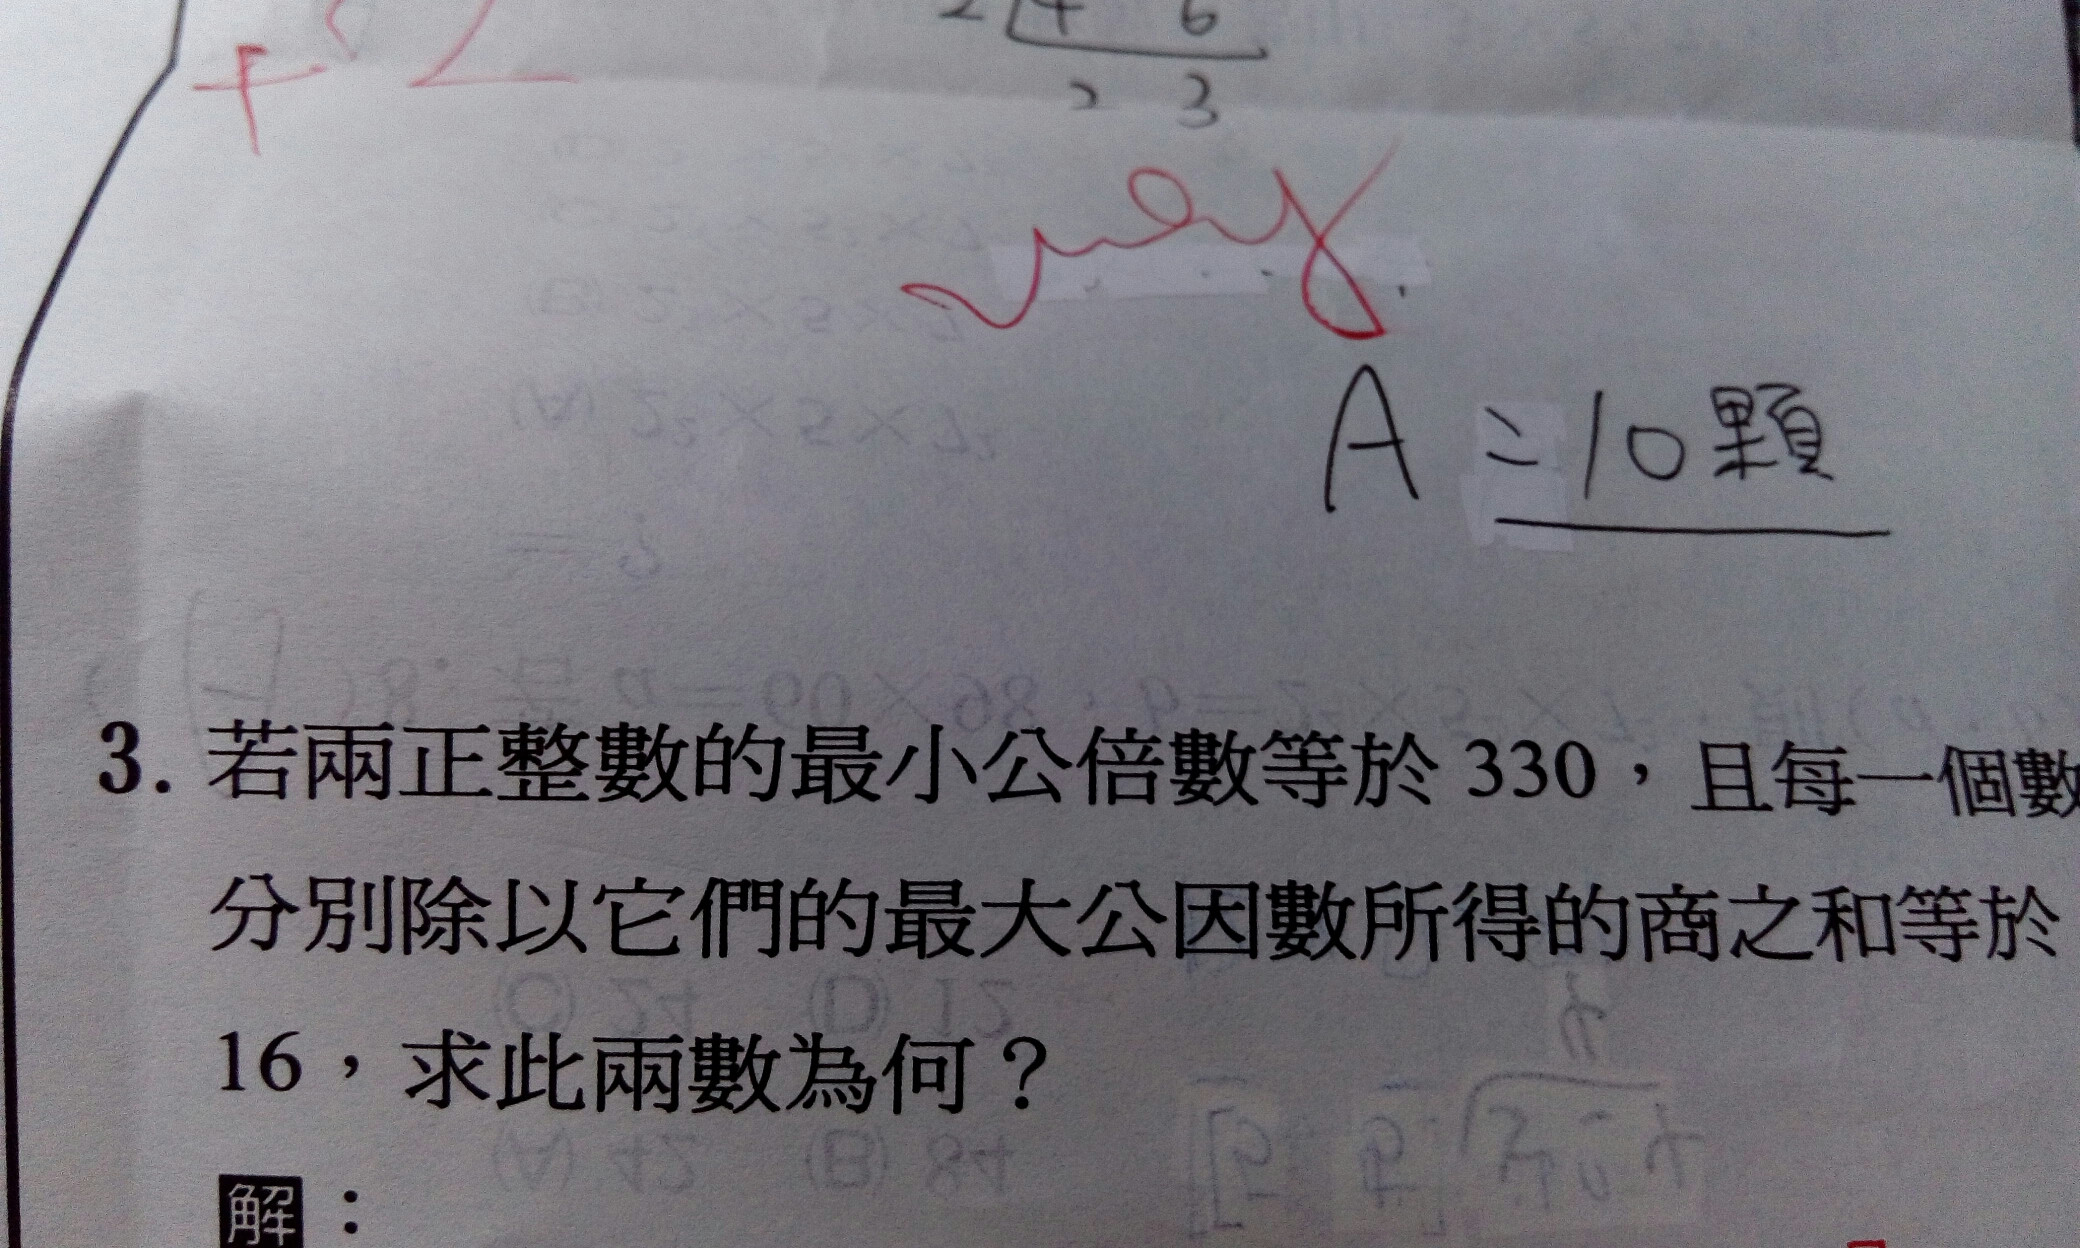 2 4 6
2 3
A = 10顆
3. 若兩正整數的最小公倍數等於 330，且每一個數
分別除以它們的最大公因數所得的商之和等於
16，求此兩數為何？
解：